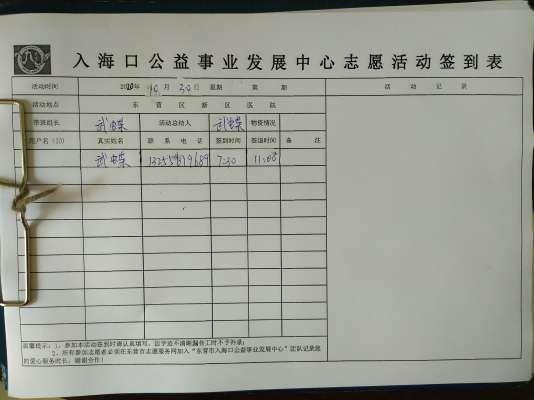 入海口公益事业发展中心志愿活动签到表
活动时间 2020年10月30日 星期 第 期 活动记录
活动地点 东营区新区医院
带班组长 武蝶 活动总动人 武蝶 物资情况
用户名(ID) 真实姓名 联系电话 签到时间 签退时间 备注
武蝶 7:30 11:00
温馨提示：1、参加本活动签到时请认真填写，因字迹不清晰漏传工时不予补录；
2、所有参加志愿者必须在东营市志愿服务网加入“东营市入海口公益事业发展中心”团队记录您
的爱心服务时长，谢谢合作！